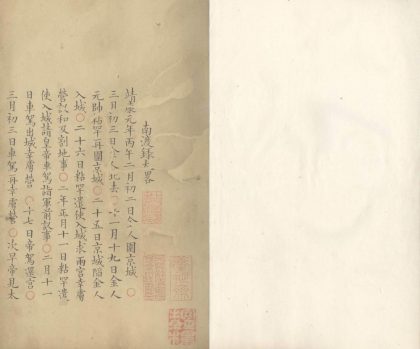 南渡錄大畧
靖康元年丙午二月初二日金人圍京城〇
三月初三日金人北去〇十一月十九日金人
元帥粘罕再圍京城〇二十五日京城陷金人
入城〇二十六日粘罕遣使入城求兩宮幸虜
營議和及割地事〇二年正月十一日粘罕遣
使入城請皇帝車駕詣軍前議事〇二月十一
日車駕出城幸虜營〇十七日帝駕還宮〇
三月初三日車駕再幸虜營〇次早帝見太